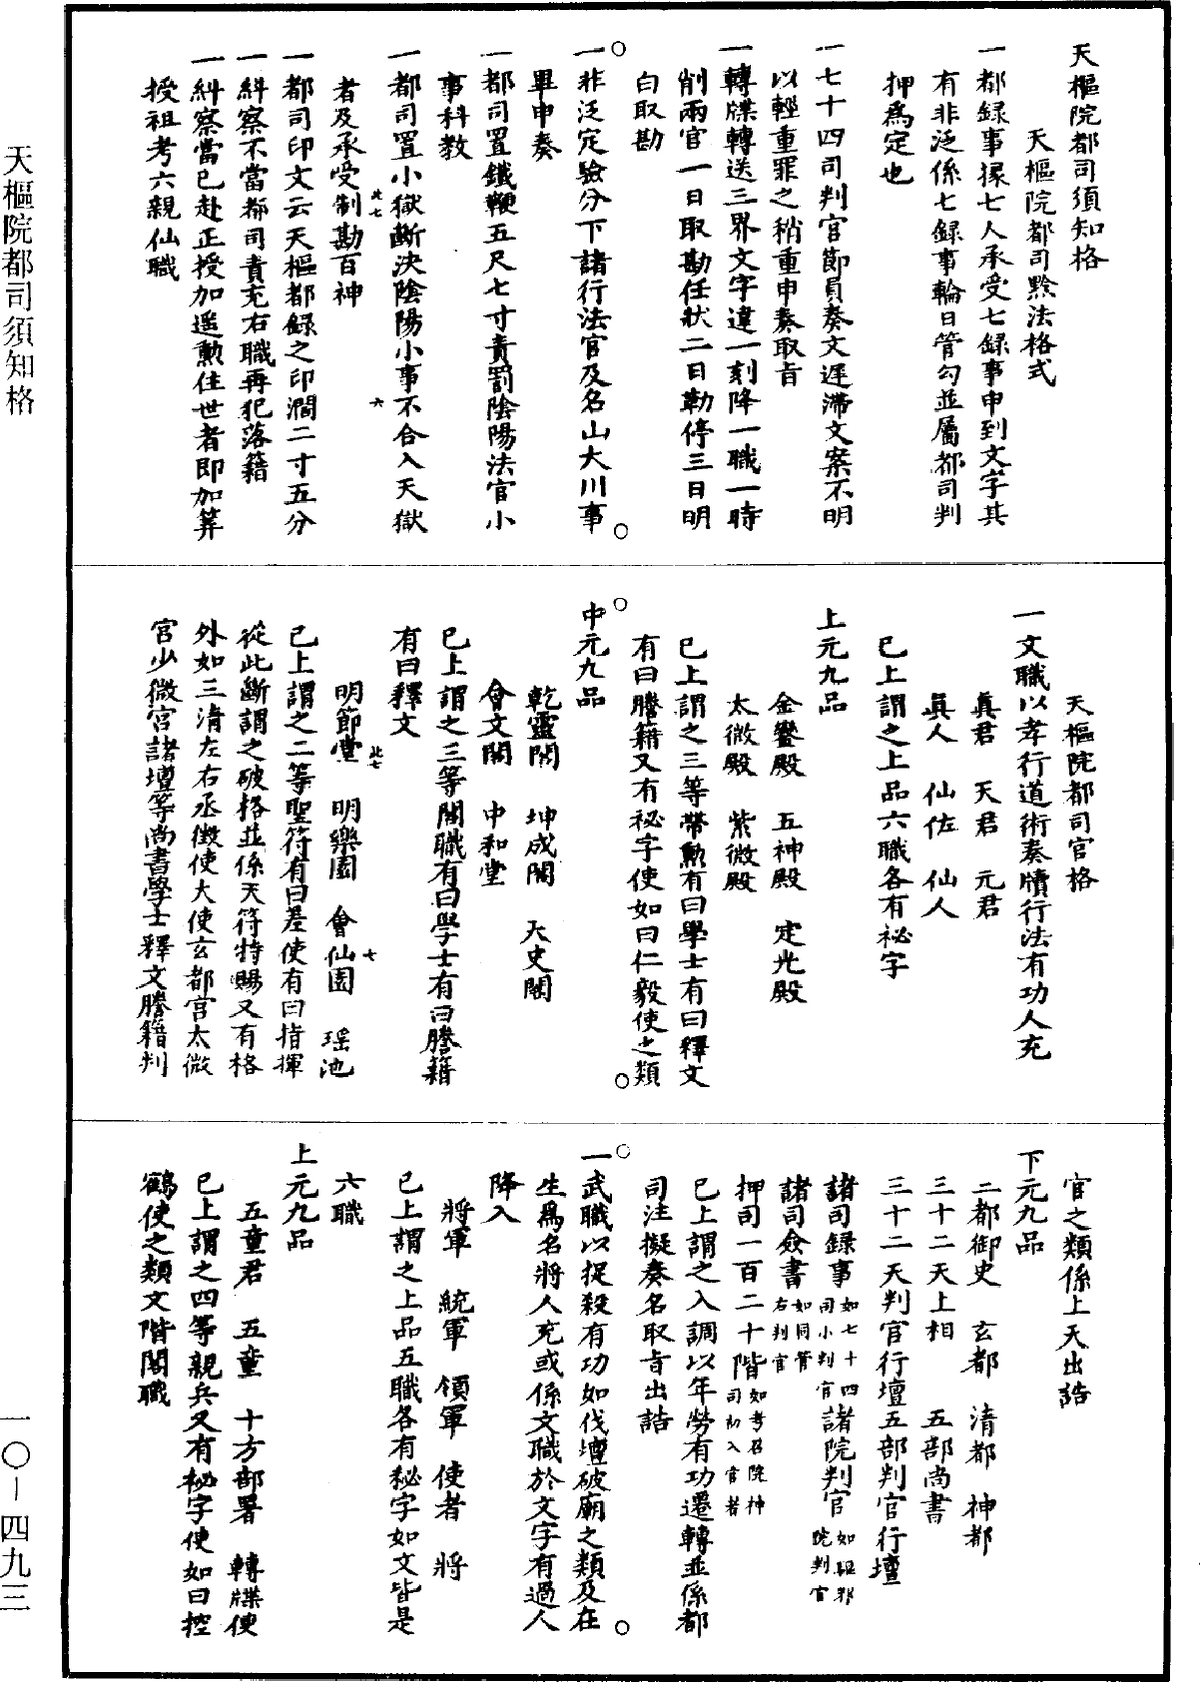 天樞院都司須知格
天樞院都司黙法格式
一都録事掾七人承受七録事申到文字其
有非泛係七録事輪日管勾並屬都司判
押爲定也
一七十四司判官節員奏文遲滯文案不明
以輕重罪之稍重申奏取旨
一轉牒轉送三界文字違一刻降一職一時
削兩官一日取勘任狀二日勒停三日明
白取勘
一非泛定驗分下諸行法官及名山大川事
畢申奏
一都司置鐵鞭五尺七寸責罰陰陽法官小
事科教
一都司置小獄斷決陰陽小事不合入天獄
者及承受制勘百神
此七
六
一都司印文云天樞都録之印濶二寸五分
一糾察不當都司責充右職再犯落籍
一糾察當已赴正授加遥勲住世者即加筭
授祖考六親仙職
天樞院都司官格
一文職以孝行道術奏牘行法有功人充
眞君 天君 元君
眞人 仙佐 仙人
已上謂之上品六職各有祕字
上元九品
金鑾殿 五神殿 定光殿
太微殿 紫微殿
已上謂之三等帶勲有曰學士有曰釋文
有曰謄籍又有祕字使如曰仁毅使之類
中元九品
乾靈閣 坤成閣 天史閣
會文閣 中和堂
已上謂之三等閣職有曰學士有曰謄籍
有曰釋文
明節堂 明樂園 會仙園 瑶池
此七
七
已上謂之二等聖符有曰差使有曰指揮
從此斷謂之破格並係天符特賜又有格
外如三清左右丞徴使大使玄都宫太微
宫少微宫諸壇等尚書學士釋文謄籍判
官之類係上天出誥
下元九品
二都御史 玄都 清都 神都
三十二天上相 五部尚書
三十二天判官行壇五部判官行壇
諸司録事如七十四司小判官諸院判官如驅邪院判官
諸司僉書如同管右判官
押司一百二十階如考召院神司初入官者
已上謂之入調以年勞有功遷轉並係都
司注擬奏名取旨出誥
一武職以捉殺有功如伐壇破廟之類及在
生爲名將人充或係文職於文字有過人
降入
將軍 統軍 領軍 使者 將
已上謂之上品五職各有秘字如文皆是
六職
上元九品
五童君 五童 十方部署 轉牒使
已上謂之四等親兵又有秘字使如曰控
鶴使之類文階閣職
天樞院都司須知格
一〇—四九三